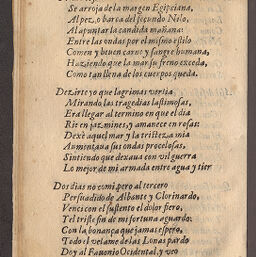 Se arroja de la margen Egipciana,
Al pez, o barca del fecundo Nilo,
Al apuntar la candida mañana:
Entre las ondas por el mismo estilo
Comen y beuen carne y sangre humana,
Haziendo que la mar su freno exceda,
Como tan llena de los cuerpos queda.
Dezirte yo que lagrimas vertia
Mirando las tragedias lastimosas,
Era llegar al termino en que el dia
Rie en jazmines, y amanece en rosas:
Dexè aquel mar y la tristeza mia
Aumentaua sus ondas procelosas,
Sintiendo que dexaua con vil guerra
Lo mejor de mi armada entre agua y tier
Dos dias no comi, pero al tercero
Persuadido de Albante y Clorinardo,
Venci con el sustento el dolor fiero,
Y el triste fin de mi fortuna aguardo:
Con la bonança que jamas espero,
Todo el velame de las Lonas pardo
Doy al Fauonio Ocidental, y veo